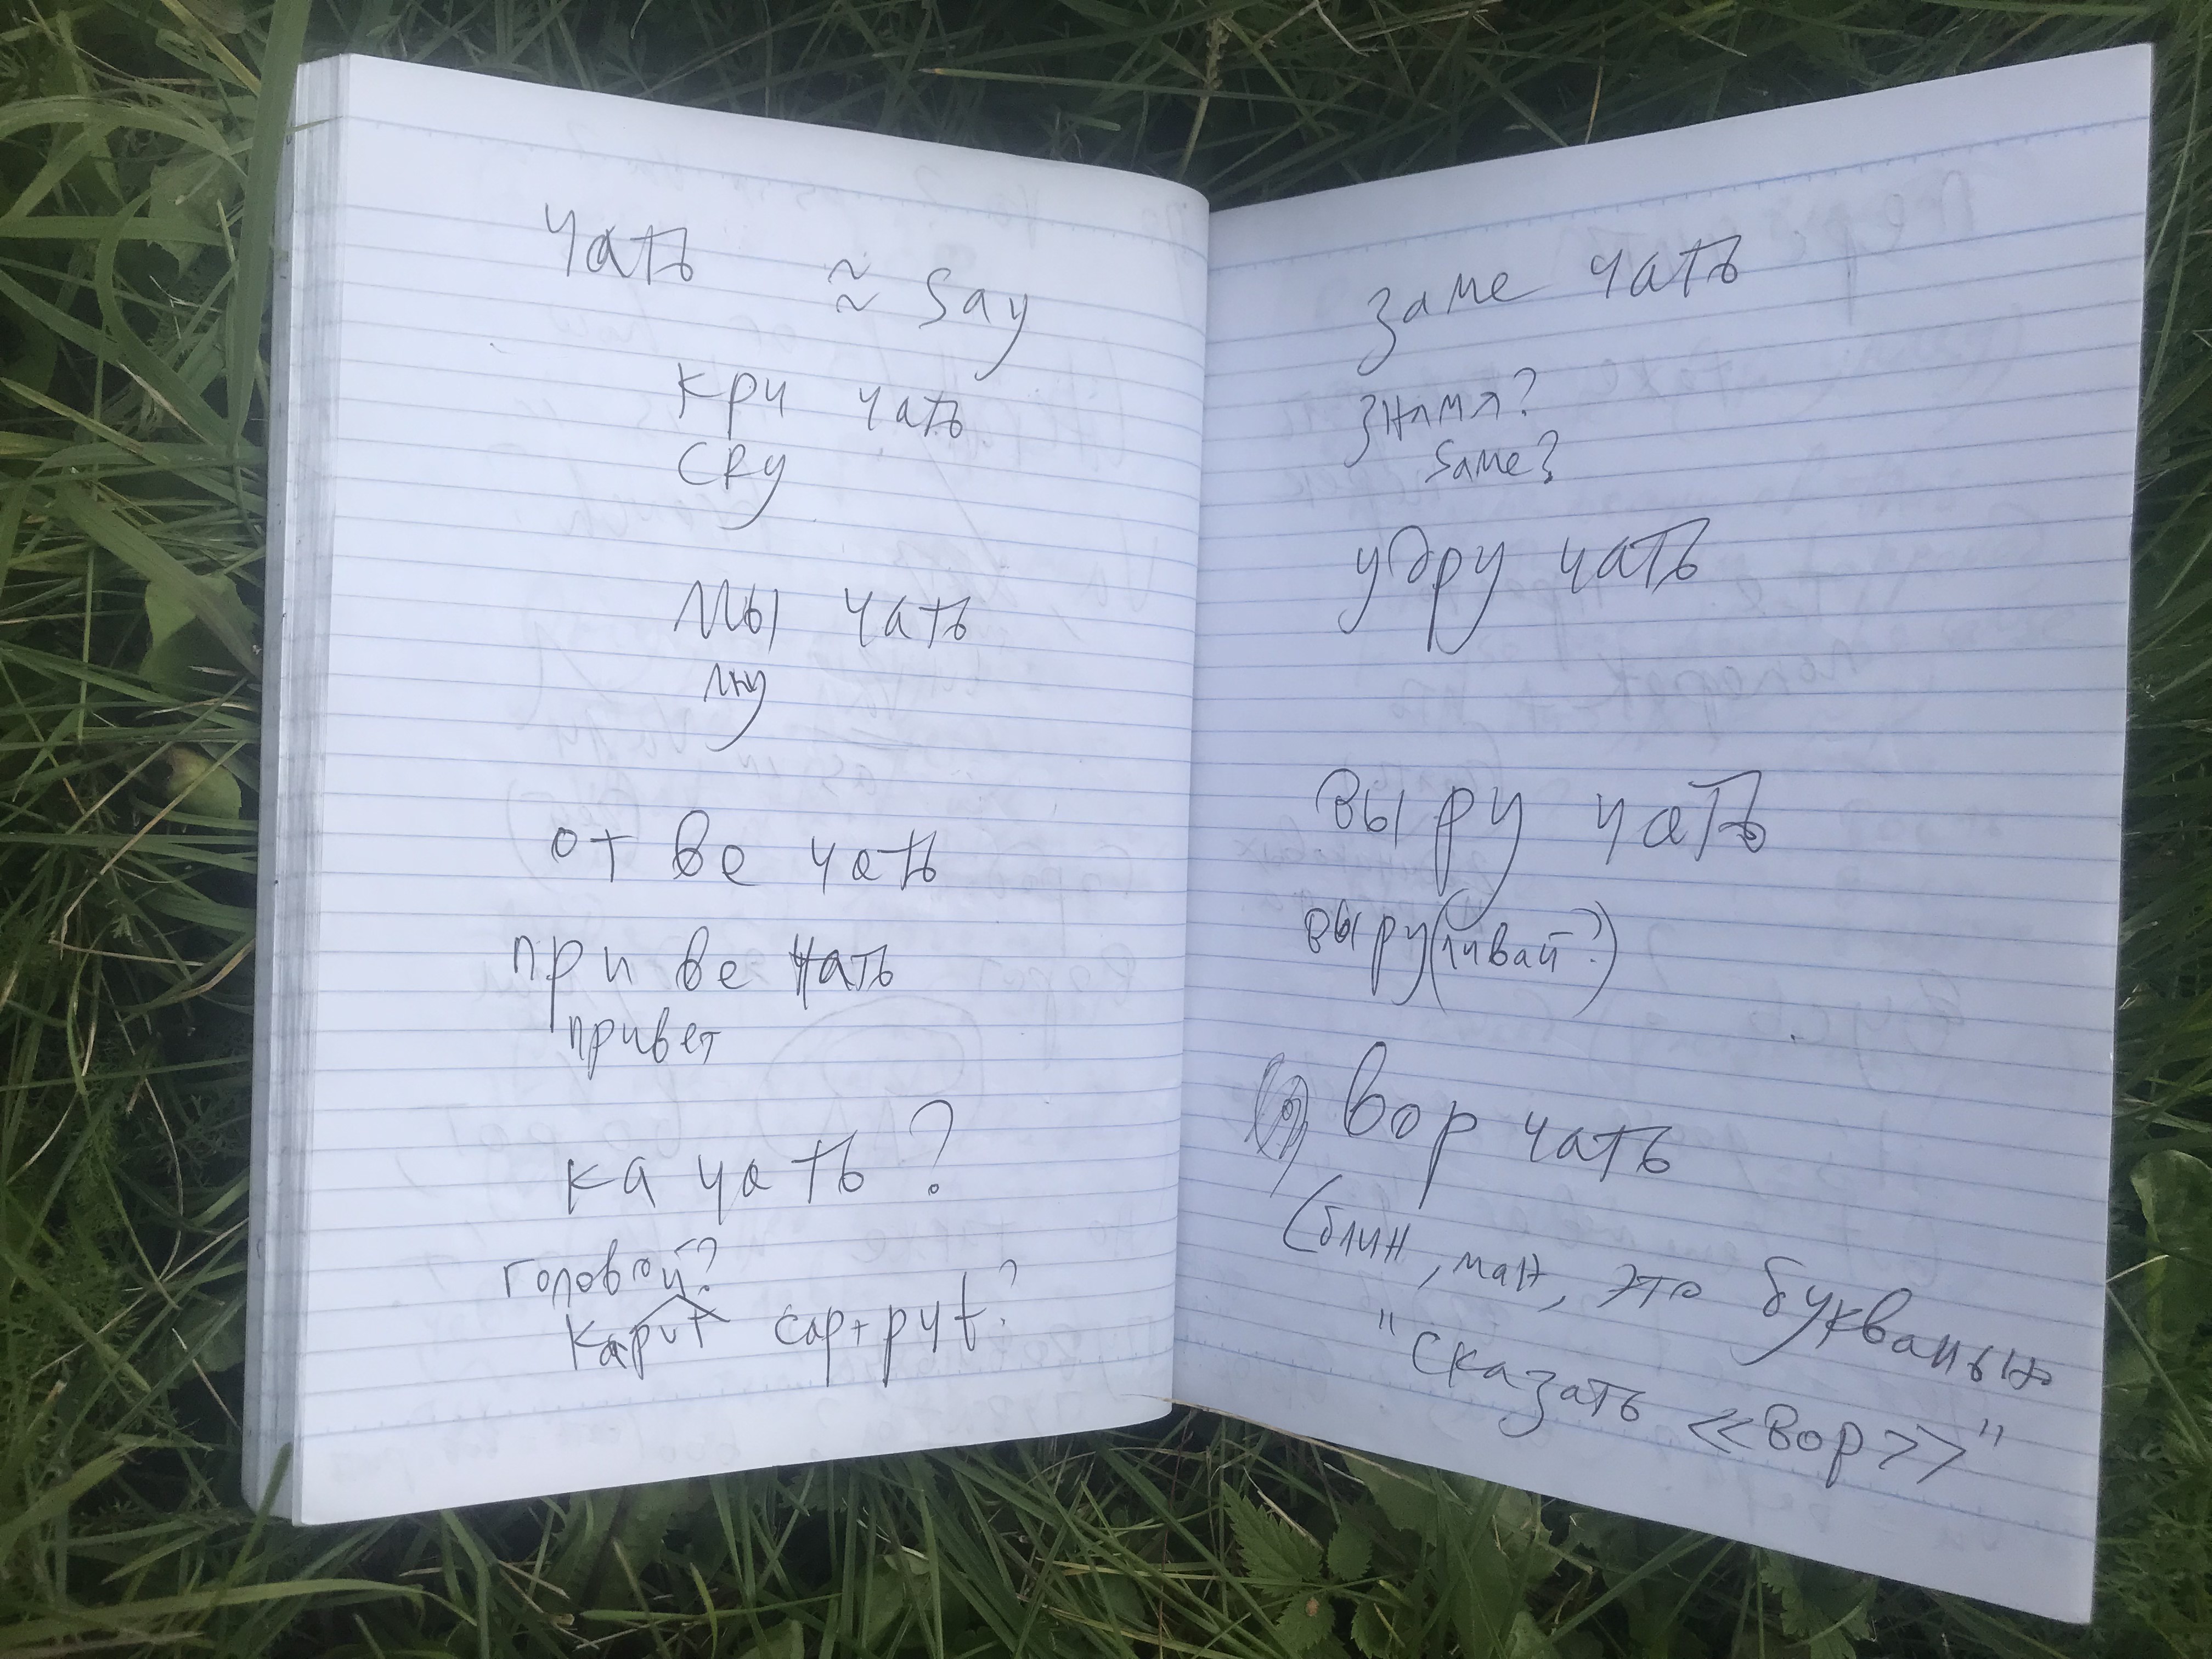 чать
≈ say
кри чать
cry
мы чать
му
от ве чать
при ве чать
привет
ка чать?
головой?
вправо?
заме чать
знамя?
same?
уру чать
вы ру чать
выру(чивай?)
вор чать
(блин, ман, это буквально
"сказать <<вор>>"